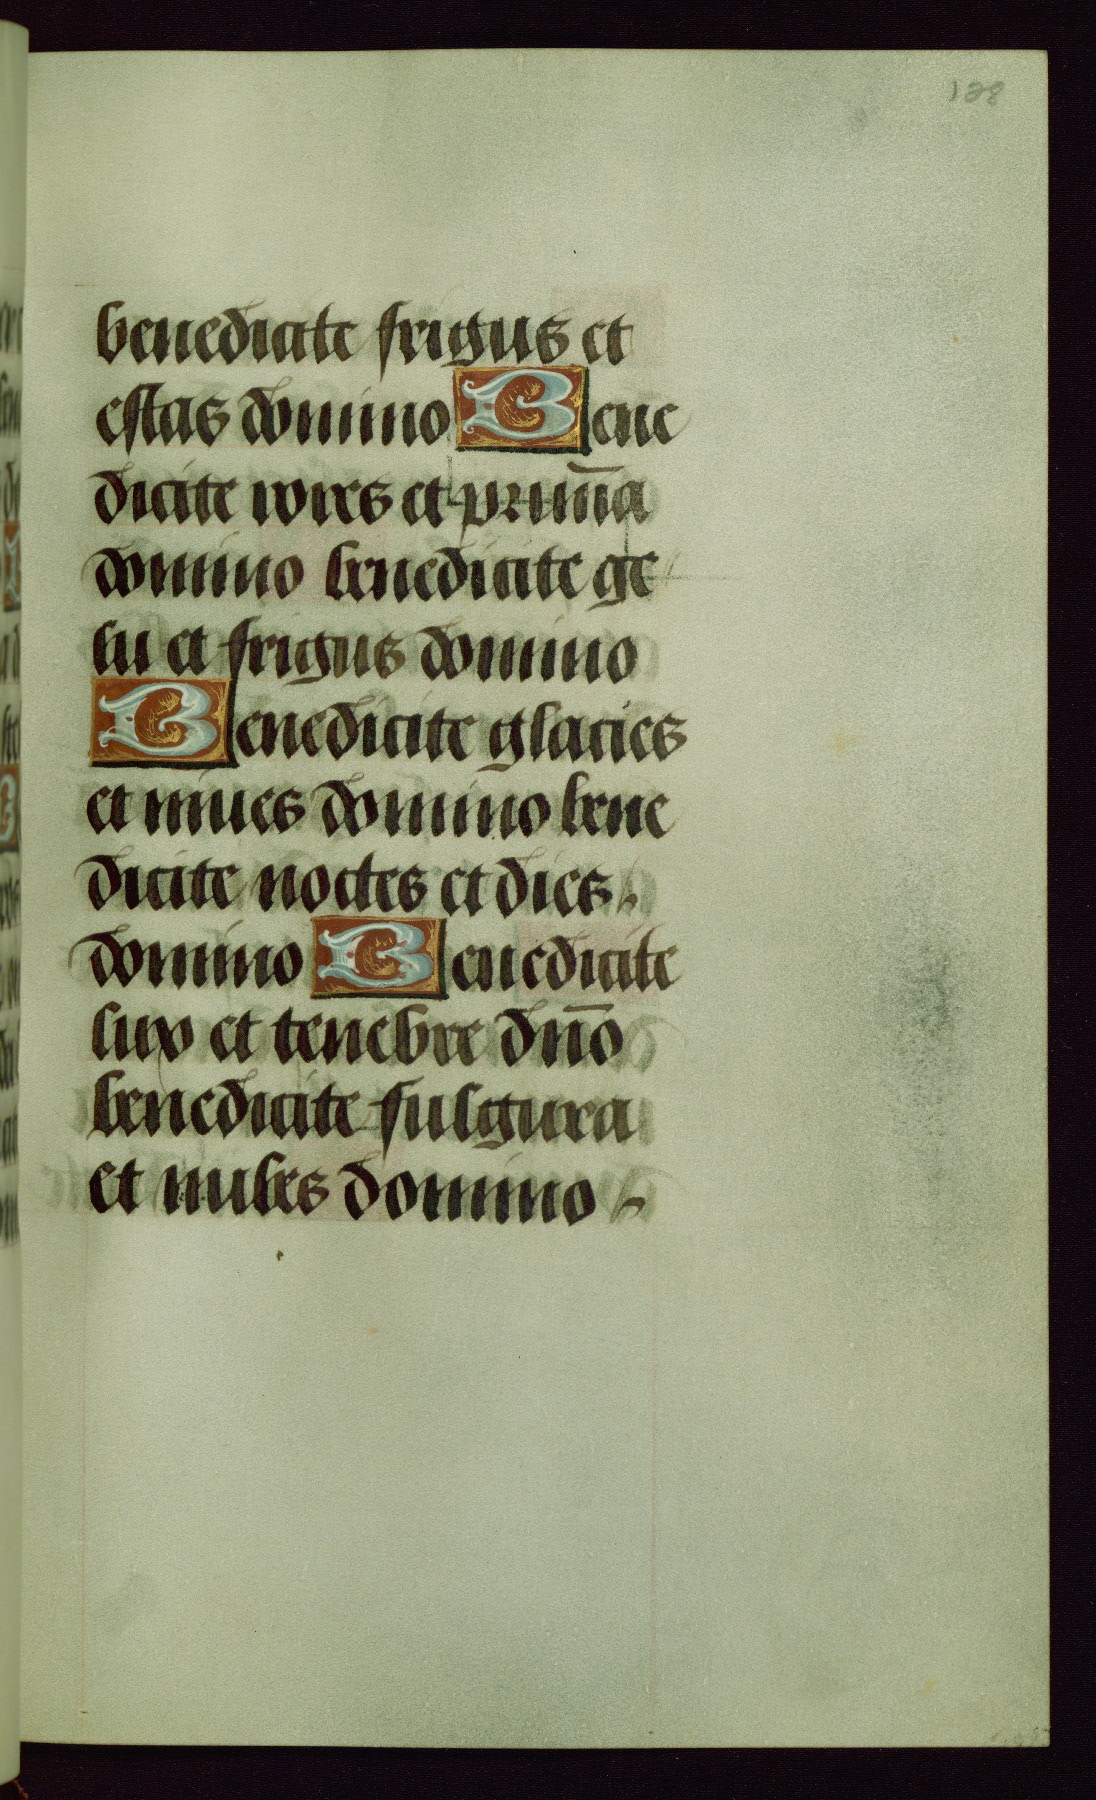 138
benedicite frigus et
estas domino Bene
dicite rores et pruin̄a
domino benedicite ge
lu et frigus domino
Benedicite glacies
et niues domino bene
dicite noctes et dies
domino Benedicite
lux et tenebre dn̄o
benedicite fulgura
et nubes domino